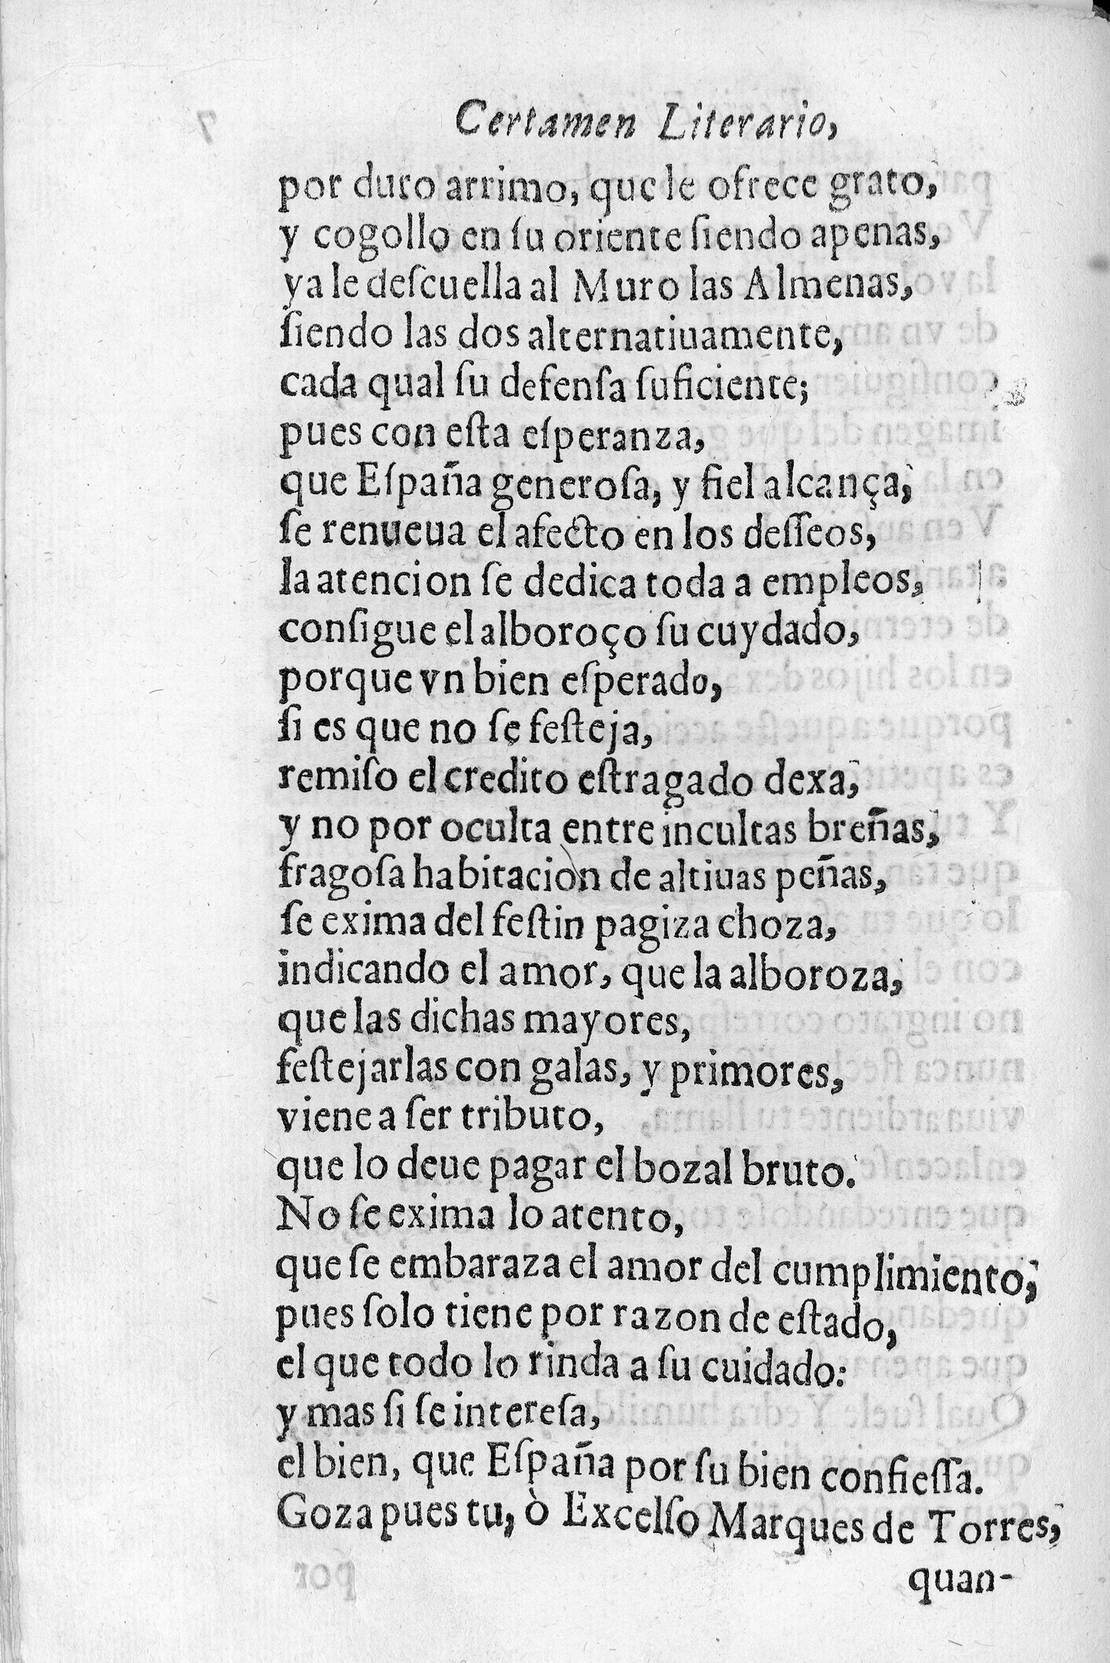 Certamen Literario,
por duro arrimo, que le ofrece grato,
y cogollo en ſu oriente ſiendo apenas,
ya le deſcuella al Muro las Almenas,
ſiendo las dos alternatiuamente,
cada qual ſu defenſa ſuficiente;
pues con eſta eſperanza,
que Eſpaña generoſa, y fiel alcança,
ſe renueua el afecto en los deſſeos,
la atencion ſe dedica toda a empleos,
conſigue el alboroço ſu cuydado,
porque vn bien eſperado,
ſi es que no ſe feſteja,
remiſo el credito eſtragado dexa,
y no por oculta entre incultas breñas,
fragoſa habitacion de altiuas peñas,
ſe exima del feſtin pagiza choza,
indicando el amor, que la alboroza,
que las dichas mayores,
feſtejarlas con galas, y primores,
viene a ſer tributo,
que lo deue pagar el bozal bruto.
No ſe exima lo atento,
que ſe embaraza el amor del cumplimiento,
pues ſolo tiene por razon de eſtado,
el que todo lo rinda a ſu cuidado:
y mas ſi ſe intereſa,
el bien, que Eſpaña por ſu bien confieſſa.
Goza pues tu, ò Excelſo Marques de Torres,
quan-